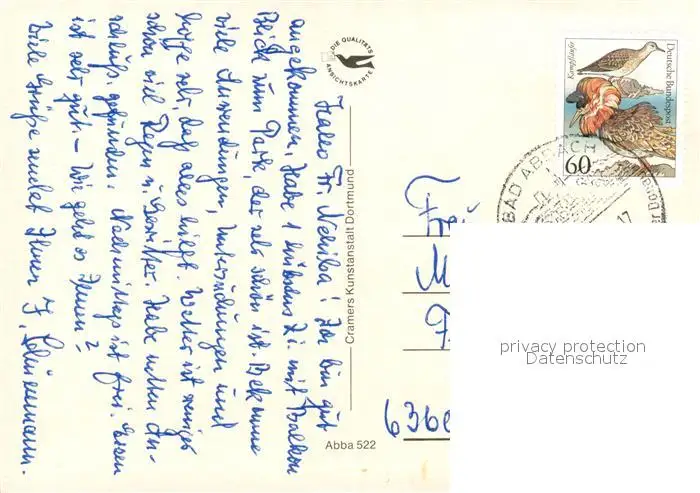 Hallo Fr. Nehiba! Ich bin gut
angekommen, habe 1 hübsches Zi. mit Balkon
Blick zum Park, der sehr schön ist. Bekomme
viele Anwendungen, Untersuchungen und
hoffe sehr, daß alles hilft. Wetter ist weniger
schön viel Regen u. Gewitter. Habe netten An-
schluß gefunden. Nachmittags ist frei. Essen
ist sehr gut. – Wie geht es Ihnen?
Viele Grüße sendet Ihnen I.
DIE QUALITÄTS
ANSICHTSKARTE
Cramers Kunstanstalt Dortmund
Abba 522
Kampfläufer
Deutsche Bundespost
60
BAD ABBACH
17
Donau
F
M
F
636
privacy protection
Datenschutz